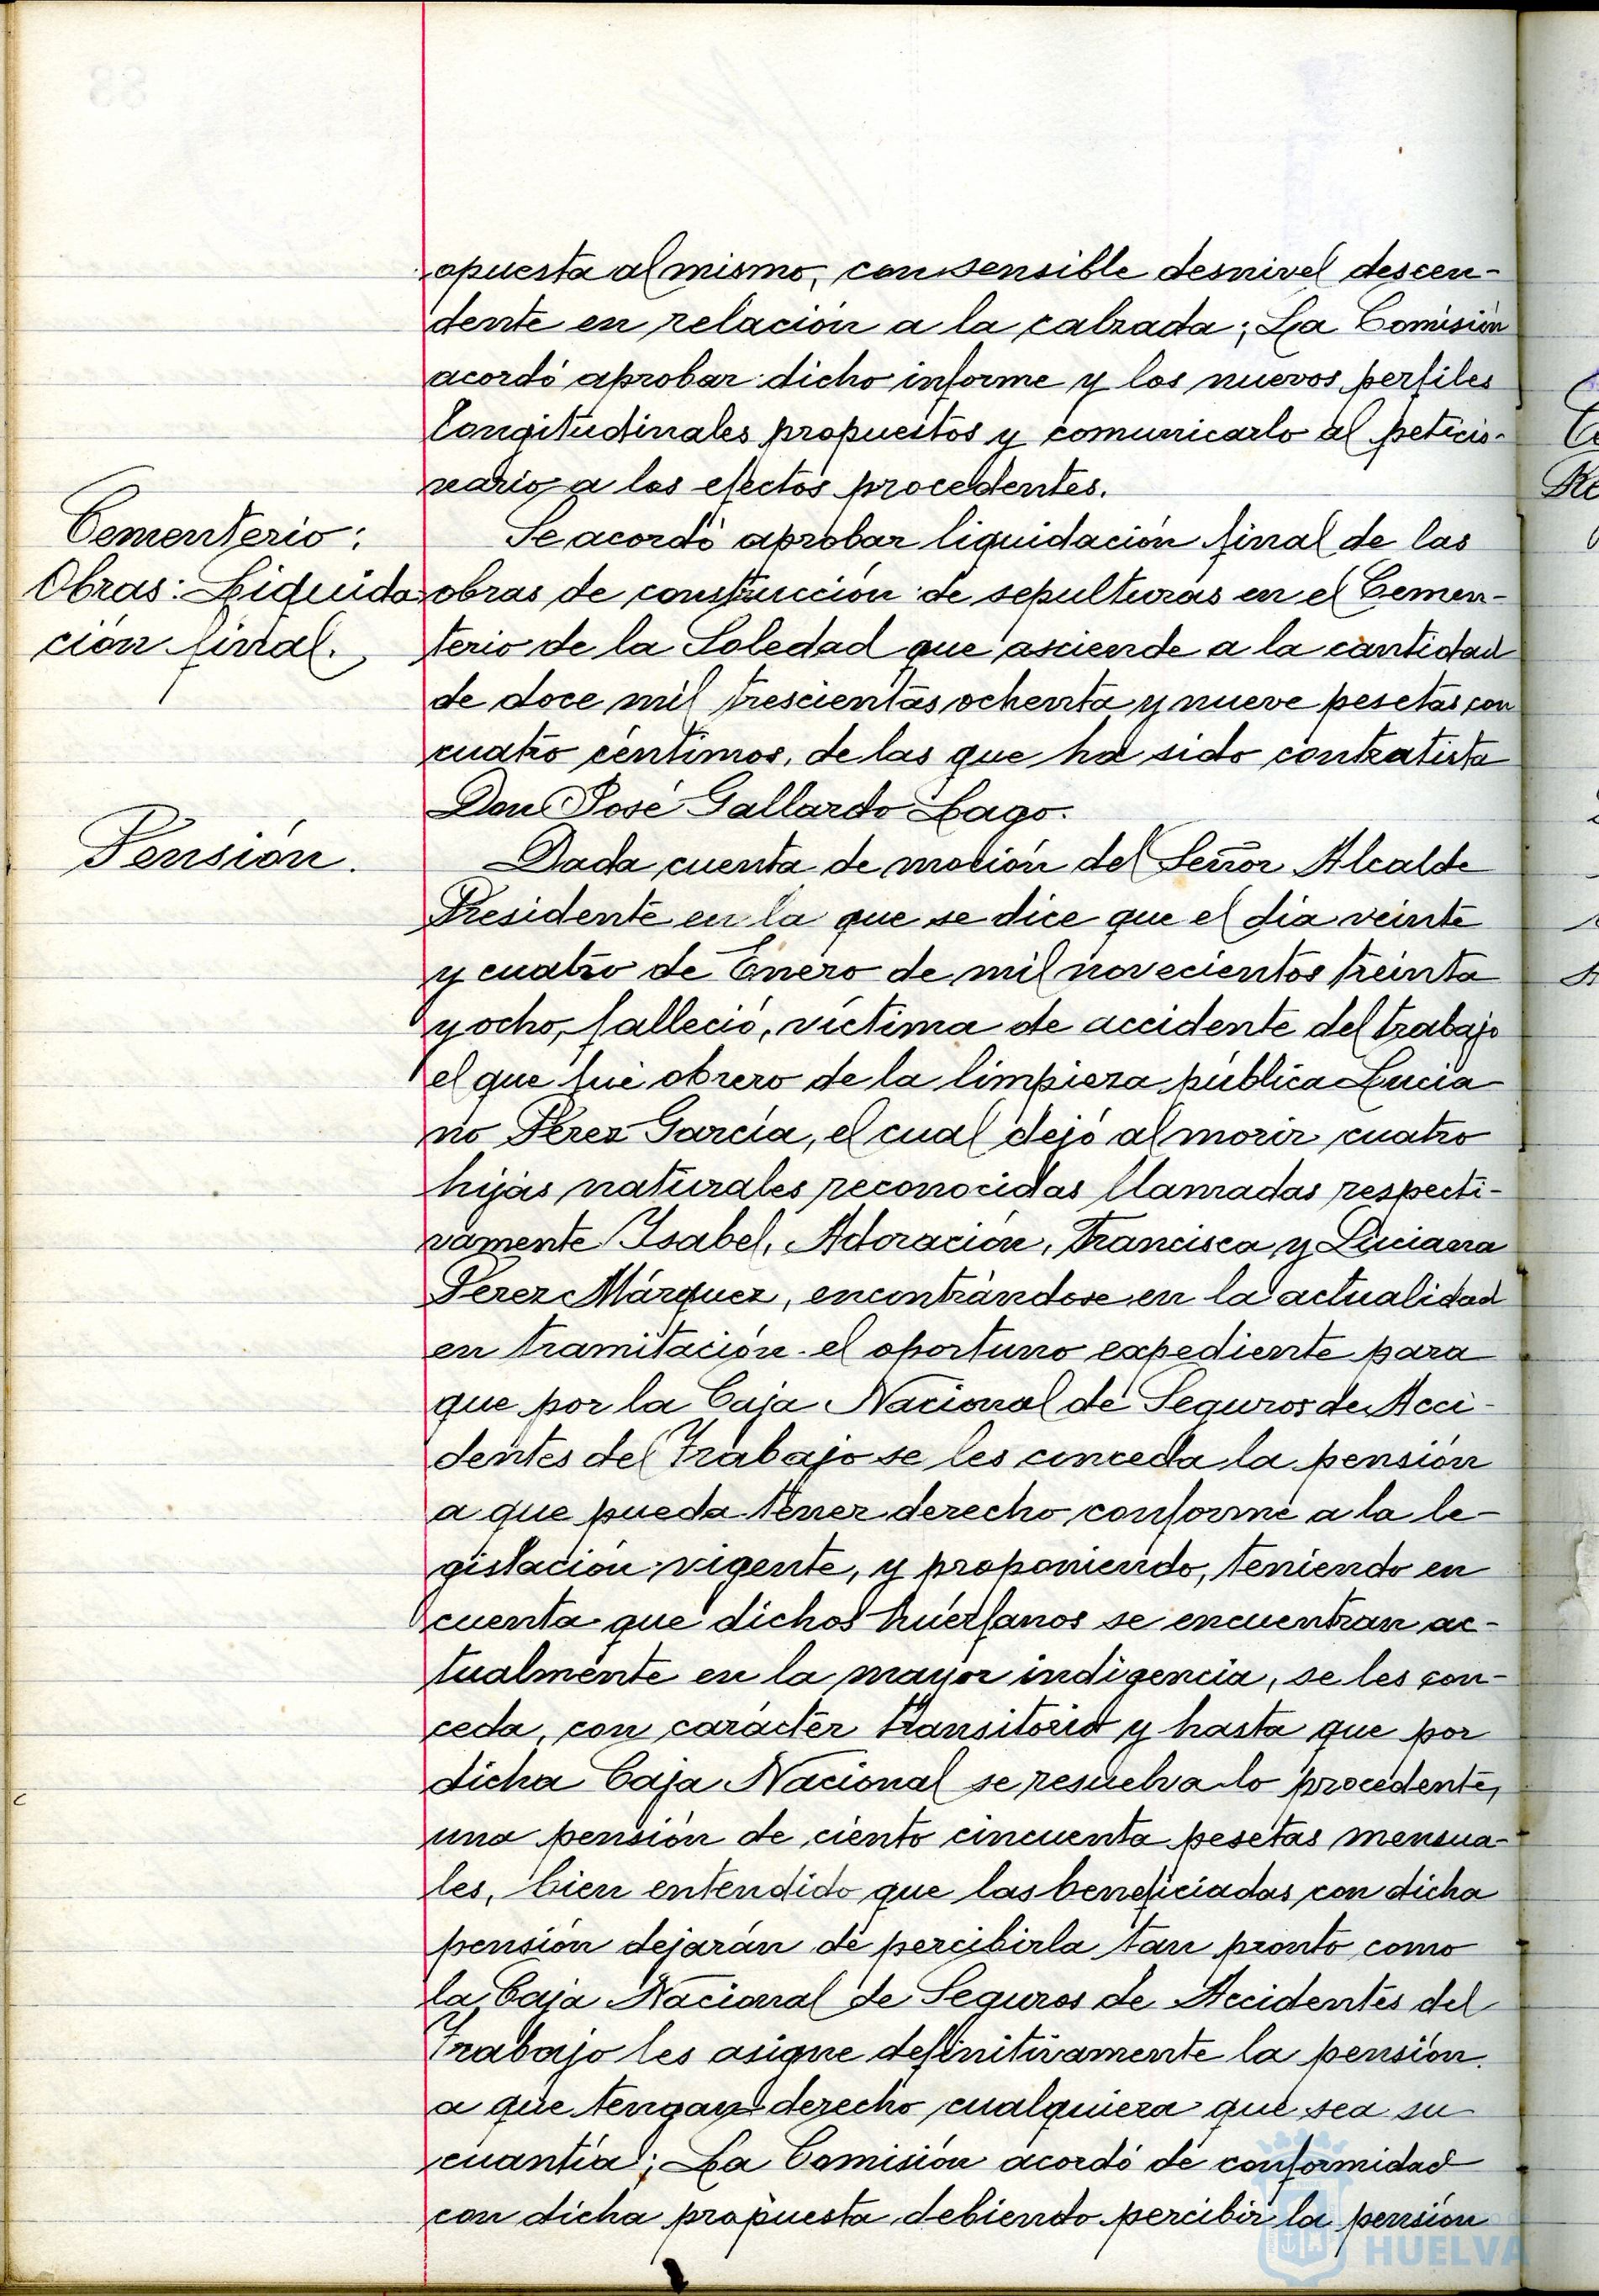 opuesta al mismo, con sensible desnivel descen-
dente en relación a la calzada; La Comisión
acordó aprobar dicho informe y los nuevos perfiles
longitudinales propuestos y comunicarlo al peticio-
nario a los efectos procedentes.
Cementerio:
Obras: Liquida
ción final.
Se acordó aprobar liquidación final de las
obras de construcción de sepulturas en el Cemen-
terio de la Soledad que asciende a la cantidad
de doce mil trescientas ochenta y nueve pesetas con
cuatro céntimos, de las que ha sido contratista
Don José Gallardo Lago.
Pensión.
Dada cuenta de moción del Señor Alcalde
Presidente en la que se dice que el dia veinte
y cuatro de Enero de mil novecientos treinta
y ocho, falleció, víctima de accidente del trabajo
el que fué obrero de la limpieza pública Lucia
no Pérez García, el cual dejó al morir cuatro
hijas naturales reconocidas llamadas respecti-
vamente Isabel, Adoración, Francisca y Luciana
Perez Márquez, encontrándose en la actualidad
en tramitación el oportuno expediente para
que por la Caja Nacional de Seguros de Acci-
dentes del Trabajo se les conceda la pensión
a que pueda tener derecho conforme a la le-
gislación vigente, y proponiendo, teniendo en
cuenta que dichos huérfanos se encuentran ac-
tualmente en la mayor indigencia, se les con-
ceda, con carácter transitorio y hasta que por
dicha Caja Nacional se resuelva lo procedente,
una pensión de ciento cincuenta pesetas mensua-
les, bien entendido que las beneficiadas con dicha
pensión dejarán de percibirla tan pronto como
la Caja Nacional de Seguros de Accidentes del
Trabajo les asigne definitivamente la pensión
a que tengan derecho cualquiera que sea su
cuantía; La Comisión acordó de conformidad
con dicha propuesta, debiendo percibir la pensión
HUELVA